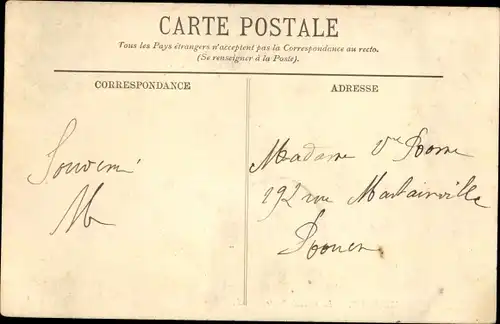 CARTE POSTALE
Tous les Pays étrangers n'acceptent pas la Correspondance au recto.
(Se renseigner à la Poste).
CORRESPONDANCE
ADRESSE
Souvenir
Madame Vve
192 rue Martainville
Rouen